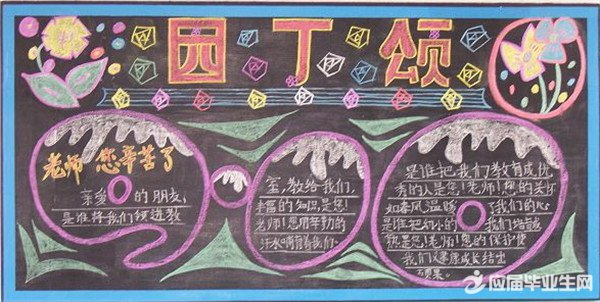 园丁颂
老师 您辛苦了
亲爱的朋友,
是谁将我们领进教
室,教给我们,
丰富的知识,是您!
老师!您用辛勤的
汗水哺育着我们。
是谁把我们教育成优
秀的人是您!老师!您的关怀
如春风温暖了我们的心
是谁把幼小的我们培育
就是您!老师!您的保护使
我们健康成长结出
硕果。
应届毕业生网